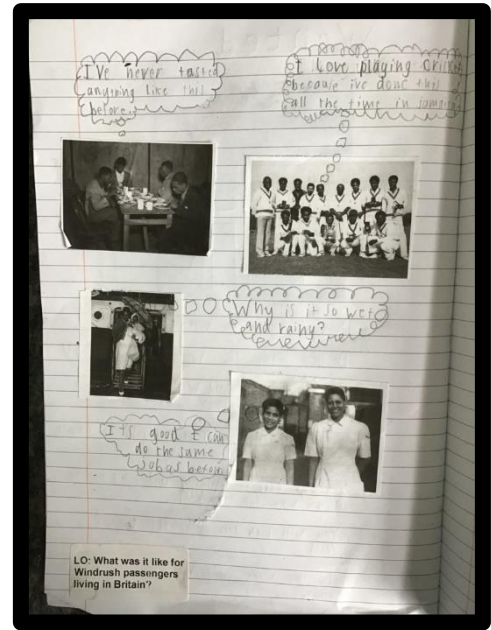 I've never tasted
anything like this
before.
I love playing cricket
because ive done this
all the time in Jamaica
Why is it so wet
and rainy?
It's good I can
do the same
job as before
LO: What was it like for
Windrush passengers
living in Britain?